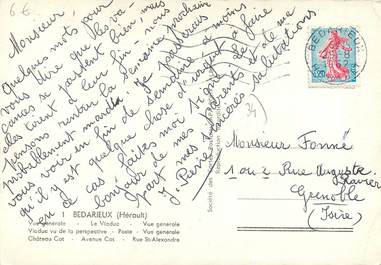 6 €
Monsieur,
Quelques mots pour
vous dire que les va-
cances se passent bien
elles tirent à leur fin, nous
pensons rentrer la semaine prochaine
probablement mardi. Je passerais
vous voir en fin de semaine à moins
qu'il y est quelque chose d'urgent à faire
en ce cas faites moi signe.
bonjour de mes parents et de ma
part mes sincères salutations
J. Pierre
BEDARIEUX
0,20
34
Monsieur Fonné
1 ou 2 Rue Auguste
Ravier
Grenoble
(Isère)
1 BEDARIEUX (Hérault)
Vue générale - Le Viaduc - Vue générale
Viaduc vu de la perspective - Poste - Vue générale
Château Cot - Avenue Cot - Rue St-Alexandre